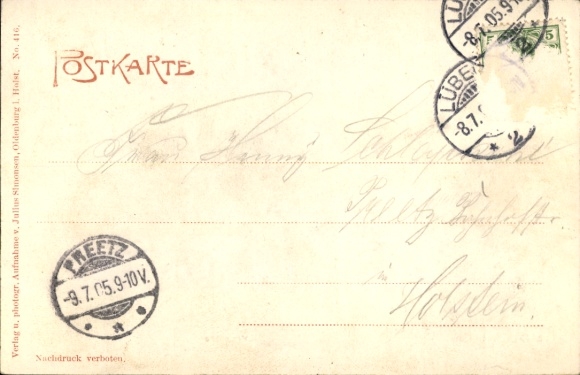 POSTKARTE
LÜBE
-8.7.05.9-
LÜBE
-8.7.
* 2
5
Frau
Preetz Bahnhofstr.
in
Holstein.
PREETZ
-9.7.05.9-10V.
Nachdruck verboten.
Verlag u. photogr. Aufnahme v. Julius Simonsen, Oldenburg i. Holst. No. 416.